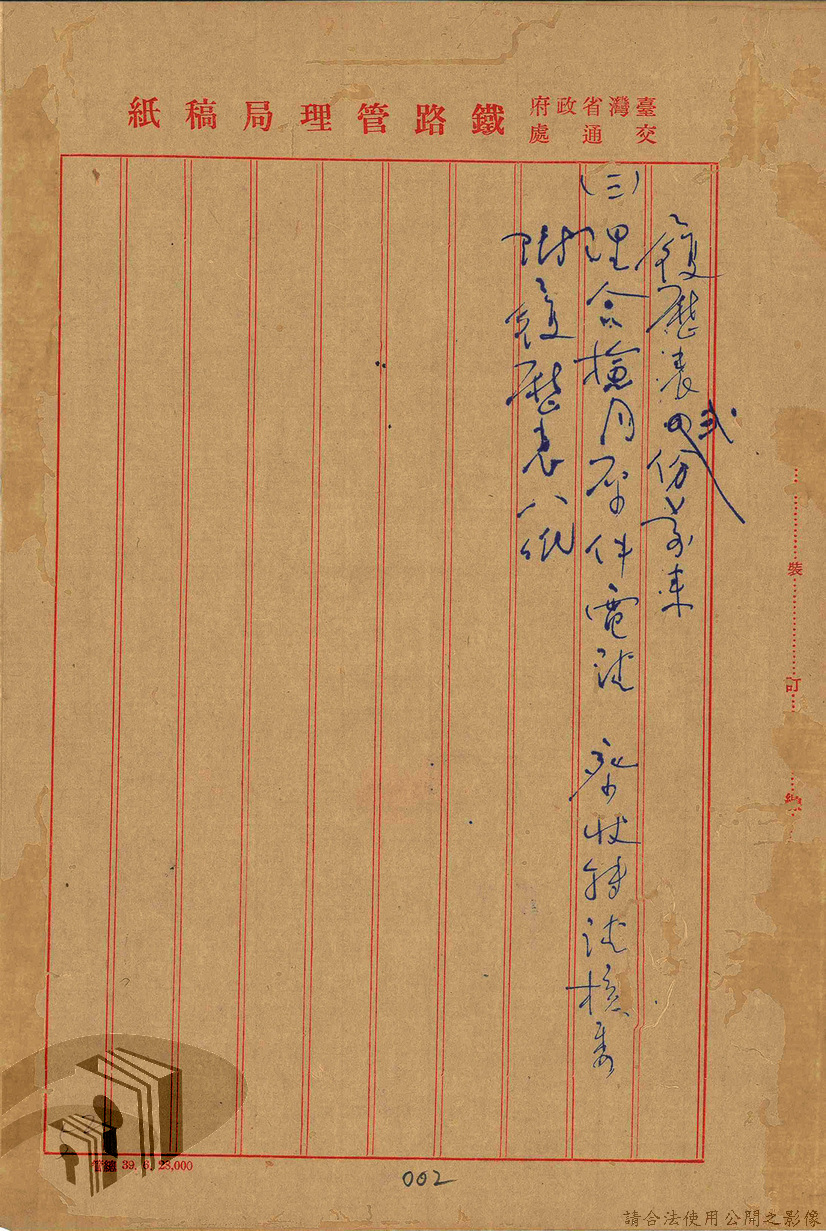 臺灣省政府
交通處
鐵路管理局稿紙
履歷表貳份前來
(三)理合檢同原件電請 察收轉請核委
附履歷表八份
裝
訂
線
管總 39. 6. 28,000
002
請合法使用公開之影像